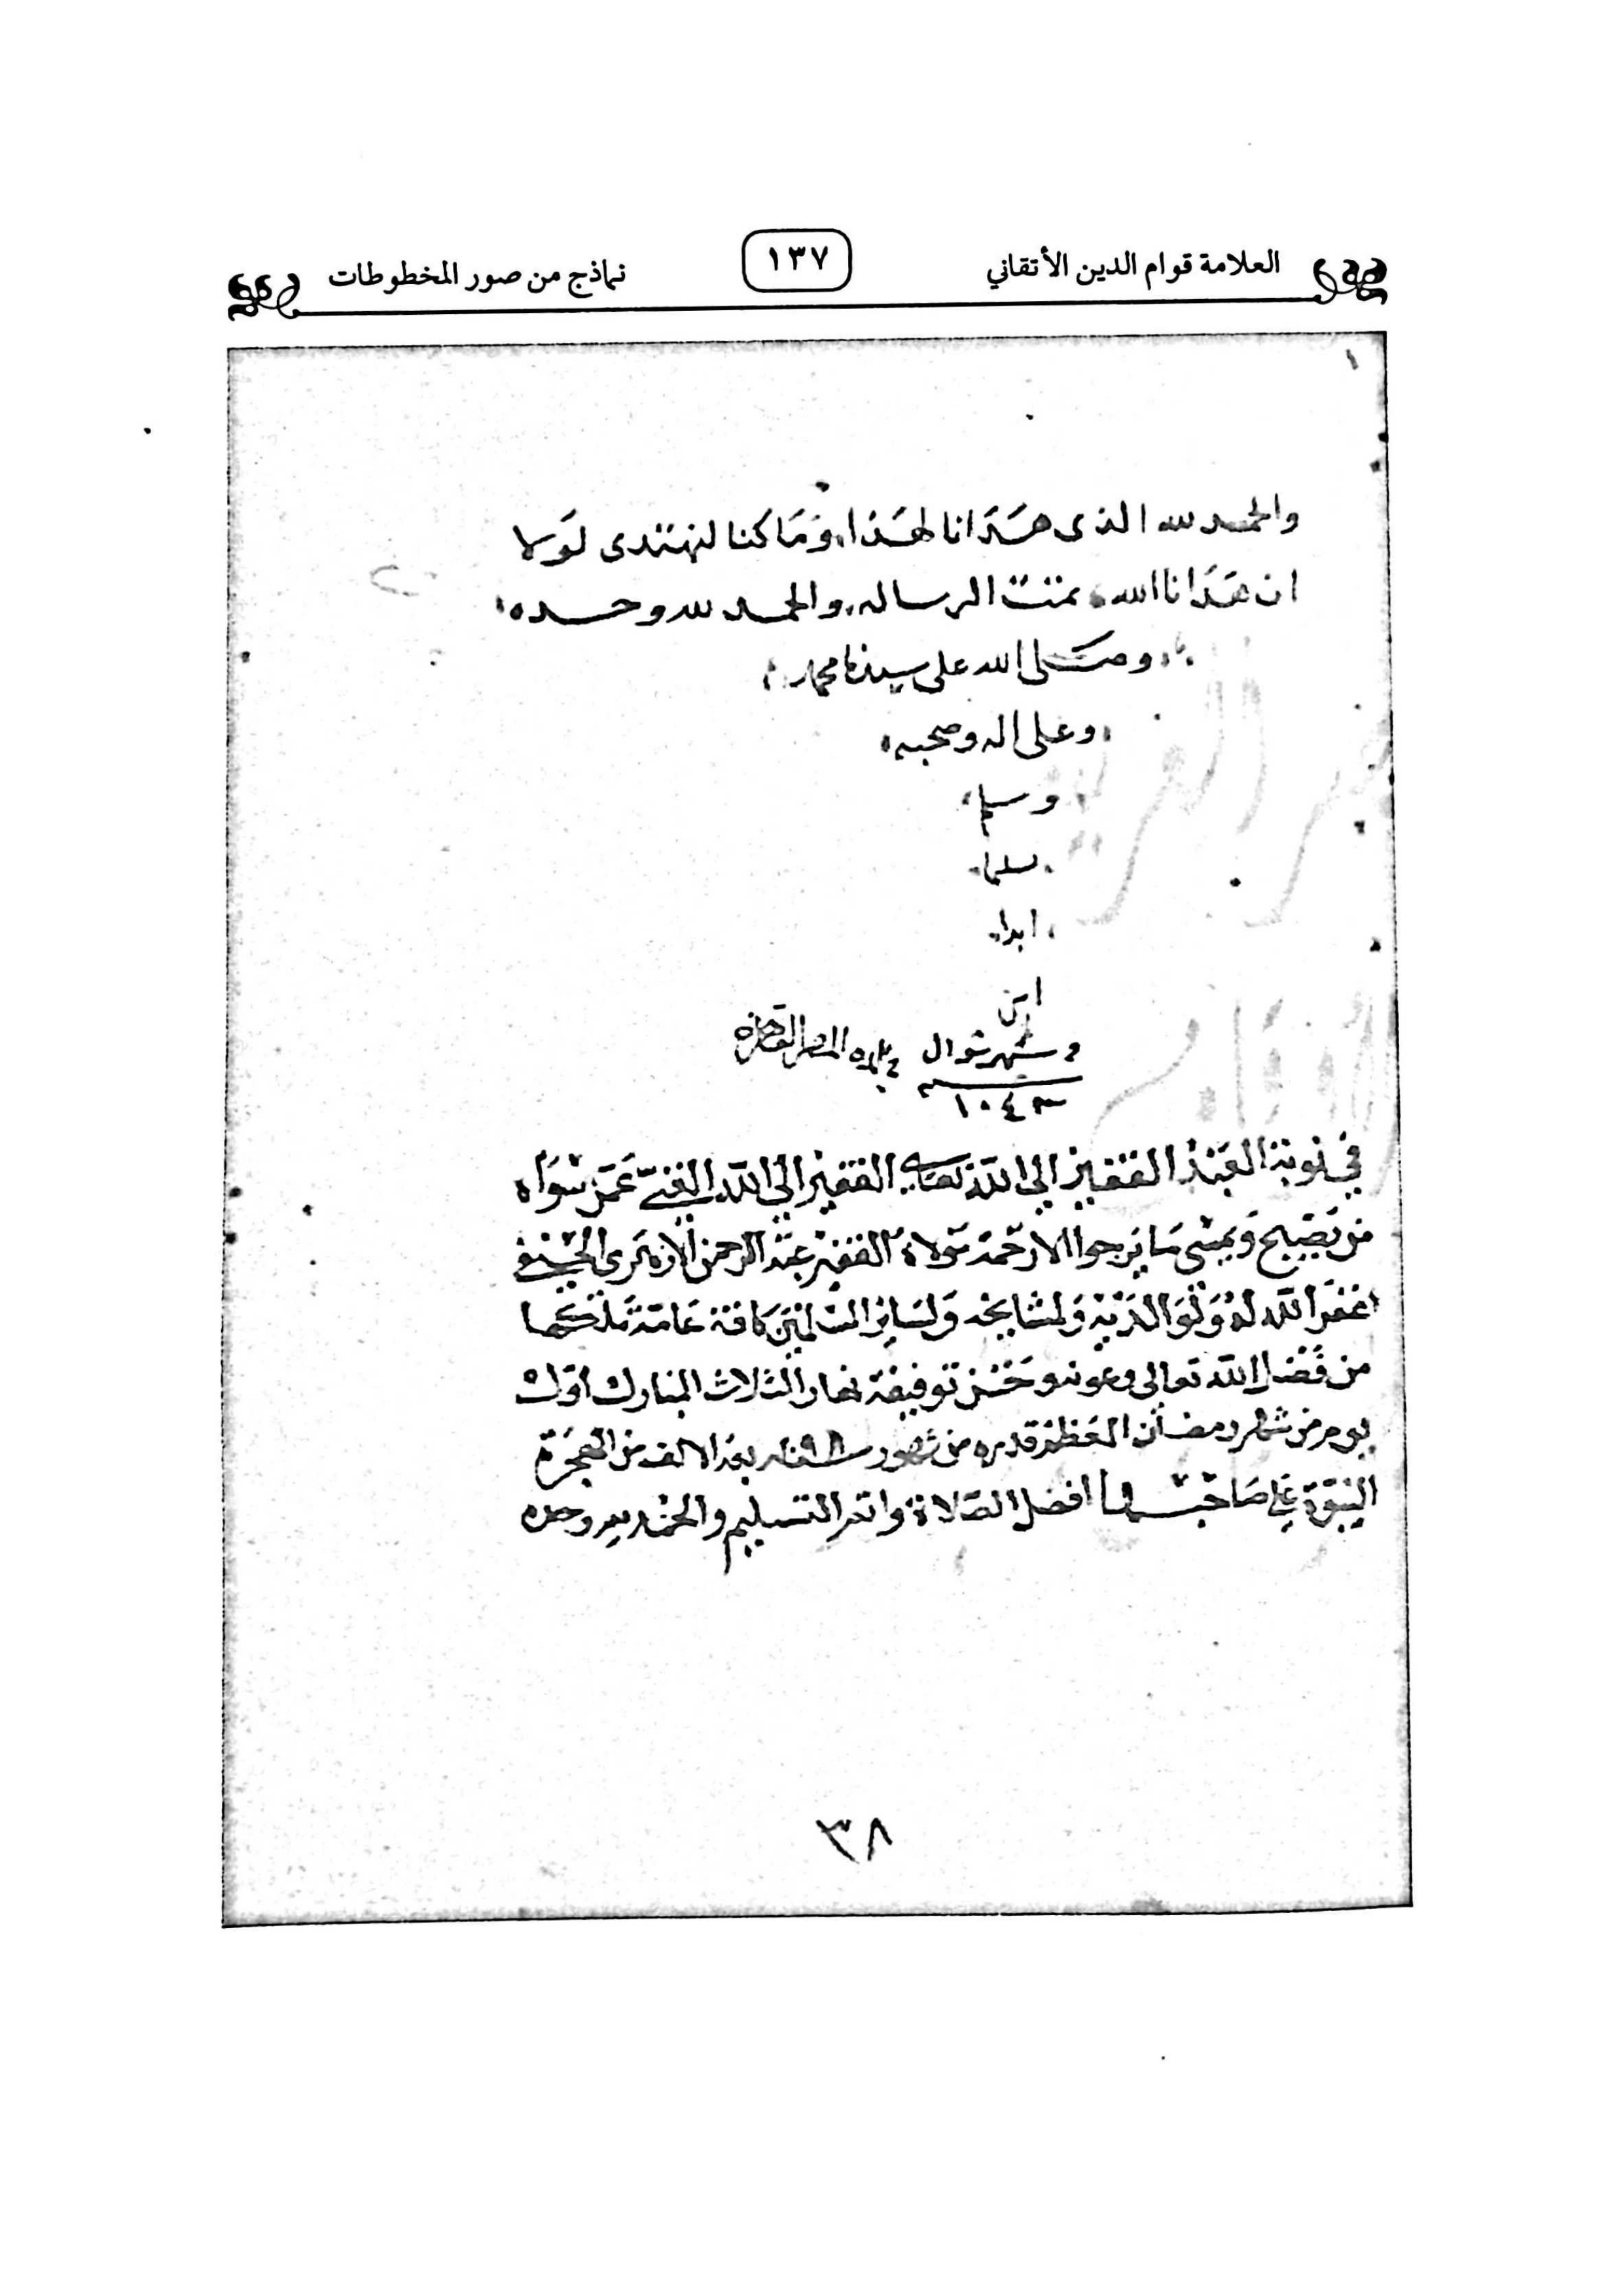 العلامة قوام الدين الأتقاني
١٣٧
نماذج من صور المخطوطات
١
والحمد لله الذى هَدَانا لهَذا، وَمَا كنا لنهتدى لَولا
ان هَدَانا الله، تمت الرساله، والحمد لله وحده،
وصَلى الله على سيدنا محمد
وعلى اله وصحبه
وسلم
سلما
ابدا
امين
شهر شوال
١٠٤٣
في نوبة العَبْد الفقير الى الله تعالى الفقير الي الله الغني عَمَّن سِوَاه
من يُصبح وَيمسْى مَا يَرجوا الا رَحمَة مَولاهُ الفقير عبْد الرحمن الازهَرى الحنفي
غفرَ الله لهُ وَلوَالدَيْهِ وَلمشايخه وَلسَاير المسْلمينَ كافة عَامَة
من فَضل الله تعالى وعونه وحُسْن توفيقه نهار الثلاث المبَارك اوّل
يوم من شهر رمضان المعَظم قدره من شهور بعد الالف من الهجرَة
النبوَّة عَلى صَاحبهَا افضل الصّلاة واتم التسليم والحمْد لله وحده
٣٨